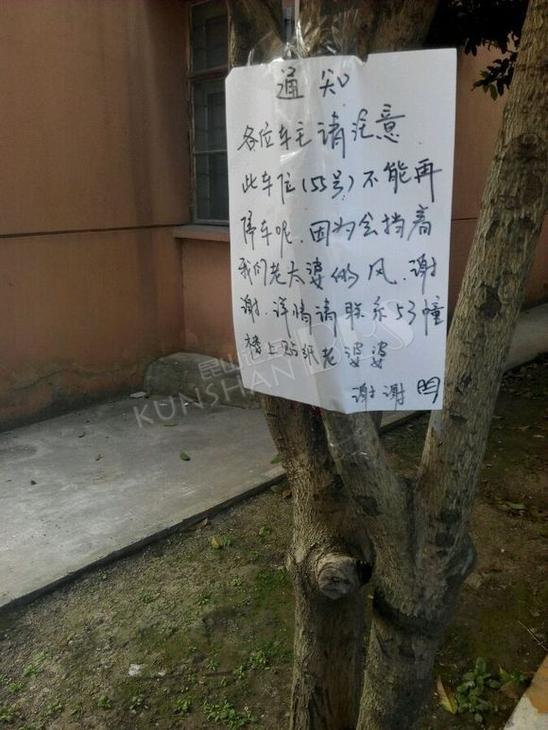 通知
各位车主请注意
此车位(55号)不能再
停车呢.因为会挡着
我们老太婆的风.谢
谢.详情请联系53幢
楼上贴纸老婆婆
谢谢
KUNSHAN